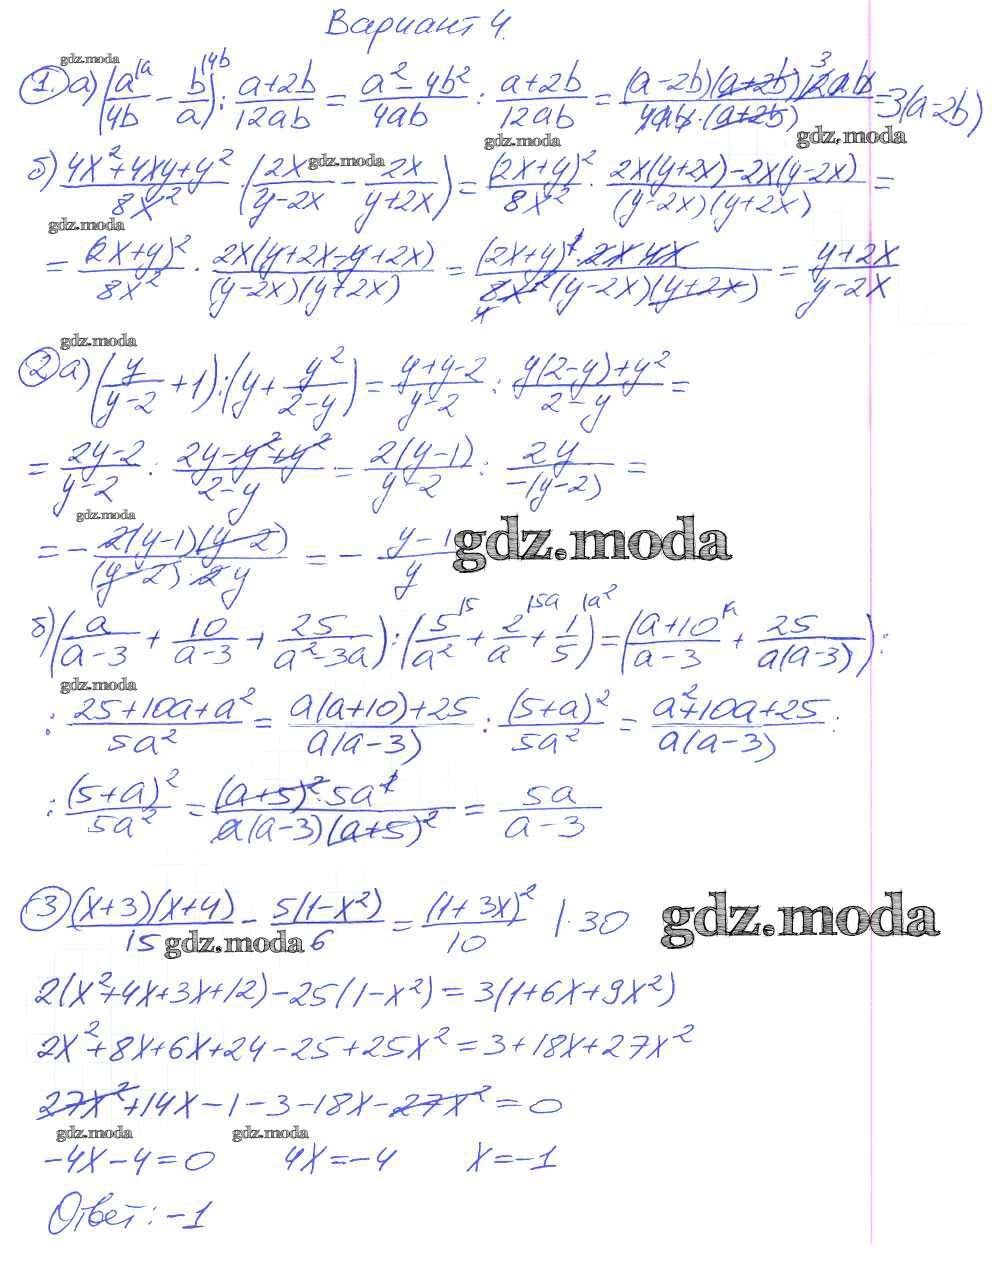 Вариант 4.
gdz.moda
1. а) (a/4b - b/a) : (a+2b)/12ab = (a² - 4b²)/4ab : (a+2b)/12ab = (a-2b)(a+2b)12ab/4ab·(a+2b) = 3(a-2b)
gdz.moda gdz.moda
б) (4x²+4xy+y²)/8x² · (2x/(y-2x) - 2x/(y+2x)) = (2x+y)²/8x² · (2x(y+2x)-2x(y-2x))/(y-2x)(y+2x) =
gdz.moda
gdz.moda
= (2x+y)²/8x² · 2x(y+2x-y+2x)/(y-2x)(y+2x) = (2x+y)²·2x·4x/8x²(y-2x)(y+2x) = (y+2x)/(y-2x)
gdz.moda
2. а) (y/(y-2) + 1) : (y + y²/(2-y)) = (y+y-2)/(y-2) : (y(2-y)+y²)/(2-y) =
= (2y-2)/(y-2) : (2y-y²+y²)/(2-y) = 2(y-1)/(y-2) : 2y/-(y-2) =
gdz.moda
= - 2(y-1)(y-2)/(y-2)·2y = - (y-1)/y
gdz.moda
б) (a/(a-3) + 10/(a-3) + 25/(a²-3a)) : (5/a² + 2/a + 1/5) = ((a+10)/(a-3) + 25/a(a-3)) :
gdz.moda
: (25+10a+a²)/5a² = (a(a+10)+25)/a(a-3) : (5+a)²/5a² = (a²+10a+25)/a(a-3) :
: (5+a)²/5a² = (a+5)²·5a²/a(a-3)(a+5)² = 5a/(a-3)
3 (x+3)(x+4)/15 - 5(1-x²)/6 = (1+3x)²/10 |·30
gdz.moda
gdz.moda
2(x²+4x+3x+12)-25(1-x²)=3(1+6x+9x²)
2x²+8x+6x+24-25+25x²=3+18x+27x²
27x²+14x-1-3-18x-27x²=0
gdz.moda gdz.moda
-4x-4=0 4x=-4 x=-1
Ответ: -1